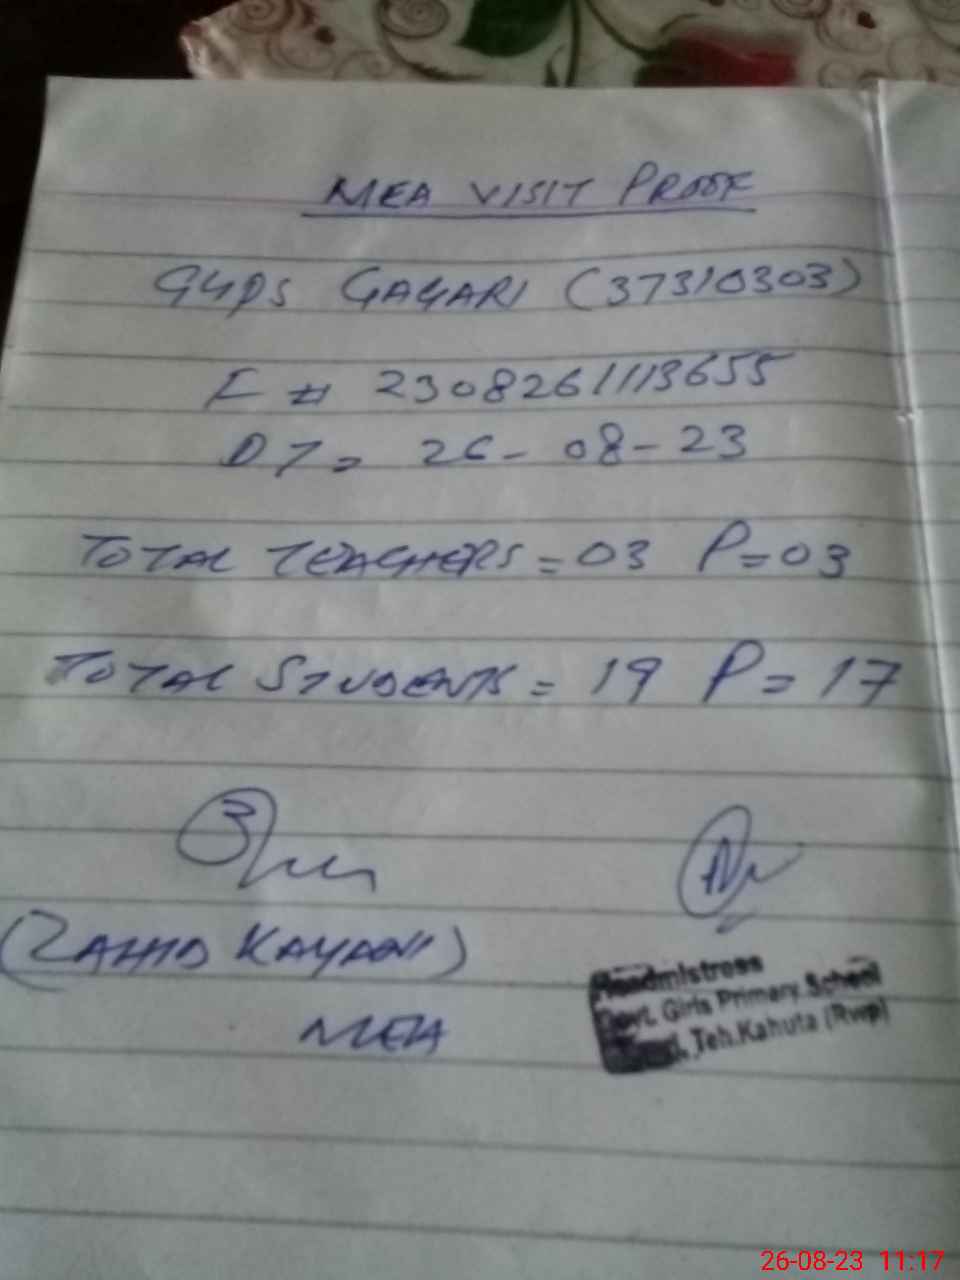 MEA VISIT PROOF
GGPS GAGARI (37310303)
I # 2308261113655
DT = 26-08-23
TOTAL TEACHERS = 03 P=03
TOTAL STUDENTS = 19 P=17
(ZAHID KAYANI)
MEA
Headmistress
Govt. Girls Primary School
Teh.Kahuta (Rwp)
26-08-23 11:17